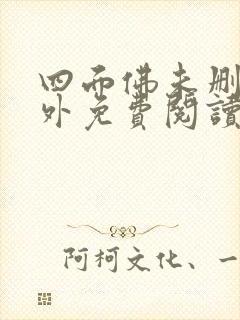 四面佛未删
外免費閱讀
阿柯文化、一